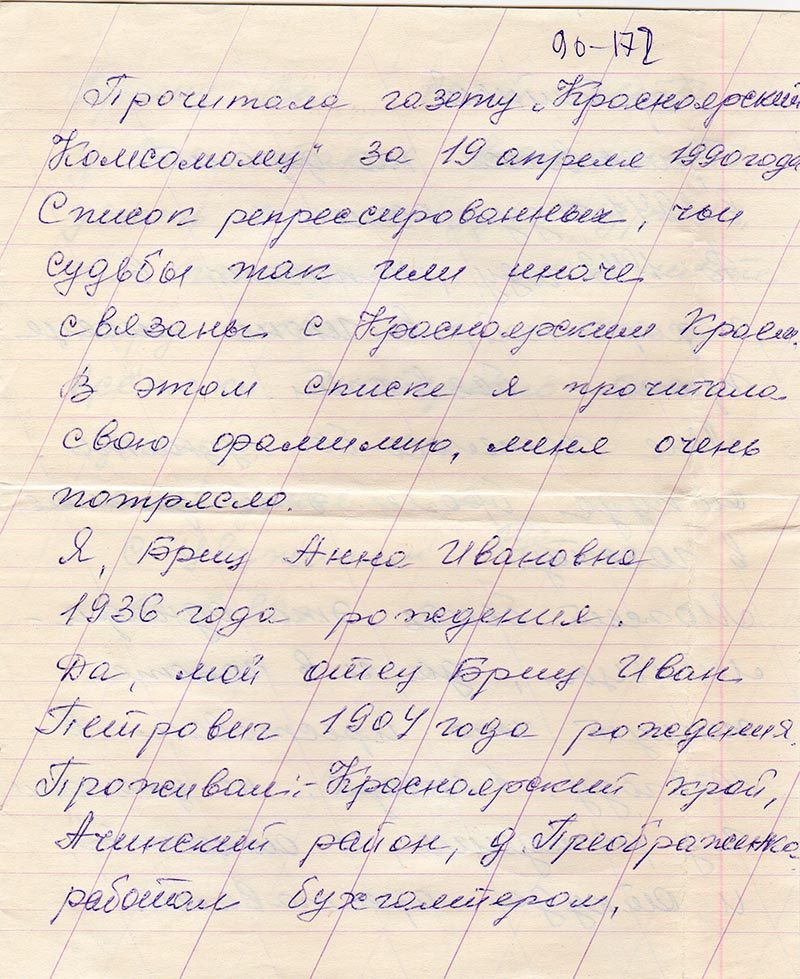 90-172
Прочитала газету „Красноярский
Комсомолец" за 19 апреля 1990 года
Список репрессированных, чьи
судьбы так или иначе
связаны с Красноярским Краем.
В этом списке я прочитала
свою фамилию, меня очень
потрясло.
Я, Бриц Анна Ивановна
1936 года рождения.
Да, мой отец Бриц Иван
Петрович 1904 года рождения.
Проживал:- Красноярский край,
Ачинский район, д. Преображенка
работал бухгалтером.